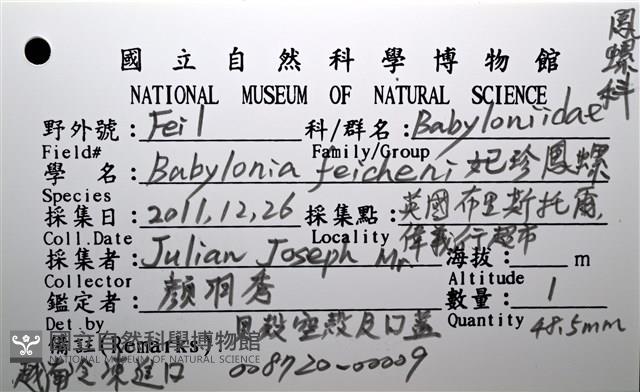 鳳螺科
國立自然科學博物館
NATIONAL MUSEUM OF NATURAL SCIENCE
野外號：Fei 1 科/群名：Babyloniidae
Field# Family/Group
學 名：Babylonia feicheni 妃珍鳳螺
Species
採集日：2011,12,26 採集點：英國布里斯托爾,
Coll.Date Locality 偉義行超市
採集者：Julian Joseph Mr. 海拔：m
Collector Altitude
鑑定者：顏翊秀 數量：1
Det.by 貝殼空殼及口蓋 Quantity 48.5mm
備註(Remarks)
國立自然科學博物館
NATIONAL MUSEUM OF NATURAL SCIENCE
越南冷凍進口 008720-00009